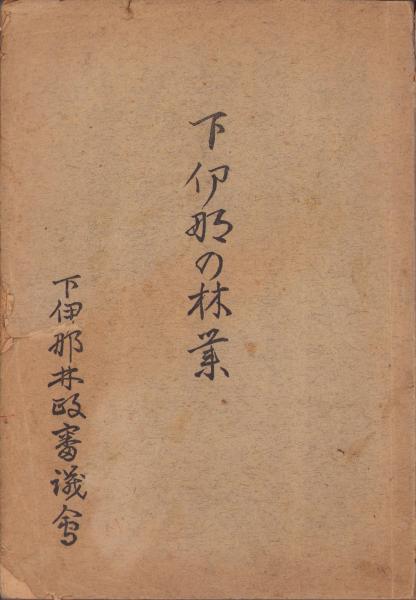 下伊那の林業
下伊那林政審議會